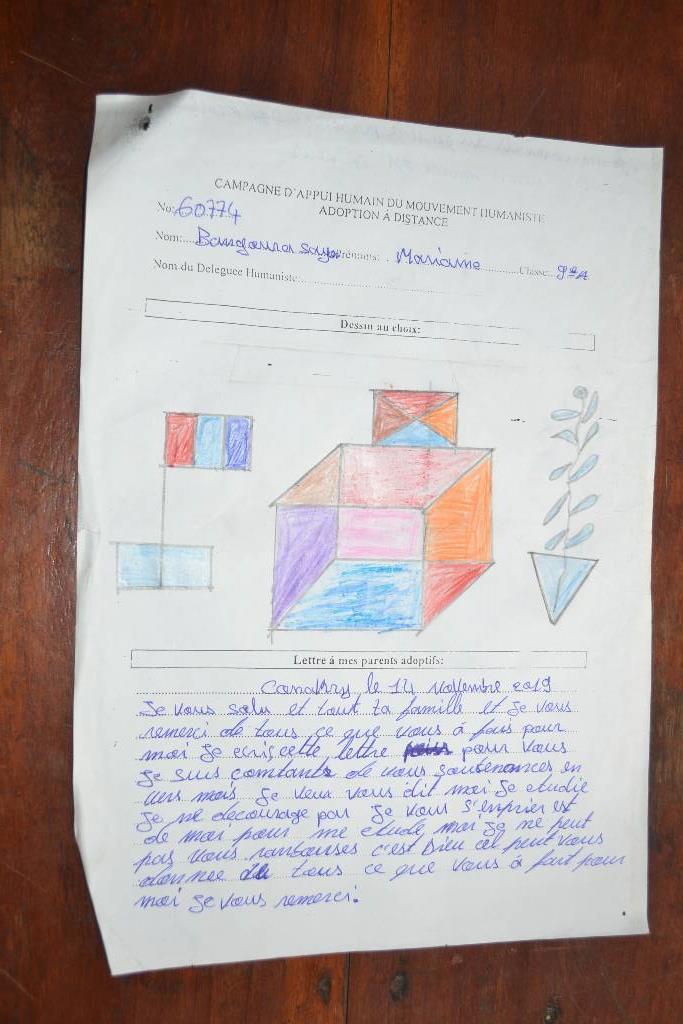 CAMPAGNE D'APPUI HUMAIN DU MOUVEMENT HUMANISTE
ADOPTION Á DISTANCE
No: 60774
Nom: Bangoura Saya Prénoms: Mariame Classe: 9è A
Nom du Deleguee Humaniste:
Dessin au choix:
Lettre á mes parents adoptifs:
Conakry le 14 novembre 2019
Je vous salu et tout ta famille et je vous
remerci de tous ce que vous à fais pour
moi je ecris cette lettre pour vous
Je suis contants de vous soutenances en
vers mois je veux vous dit moi je etudie
je ne decourage pas je vous s'enprier est
de moi pour me etude moi je ne peut
pas vous rambourses c'est Dieu cel peut vous
donnee de tous ce que vous à fait pour
moi je vous remerci.